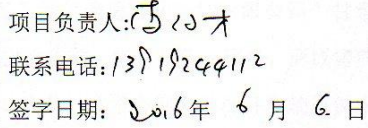 项目负责人:
联系电话:13919244112
签字日期: 2016年 6 月 6 日